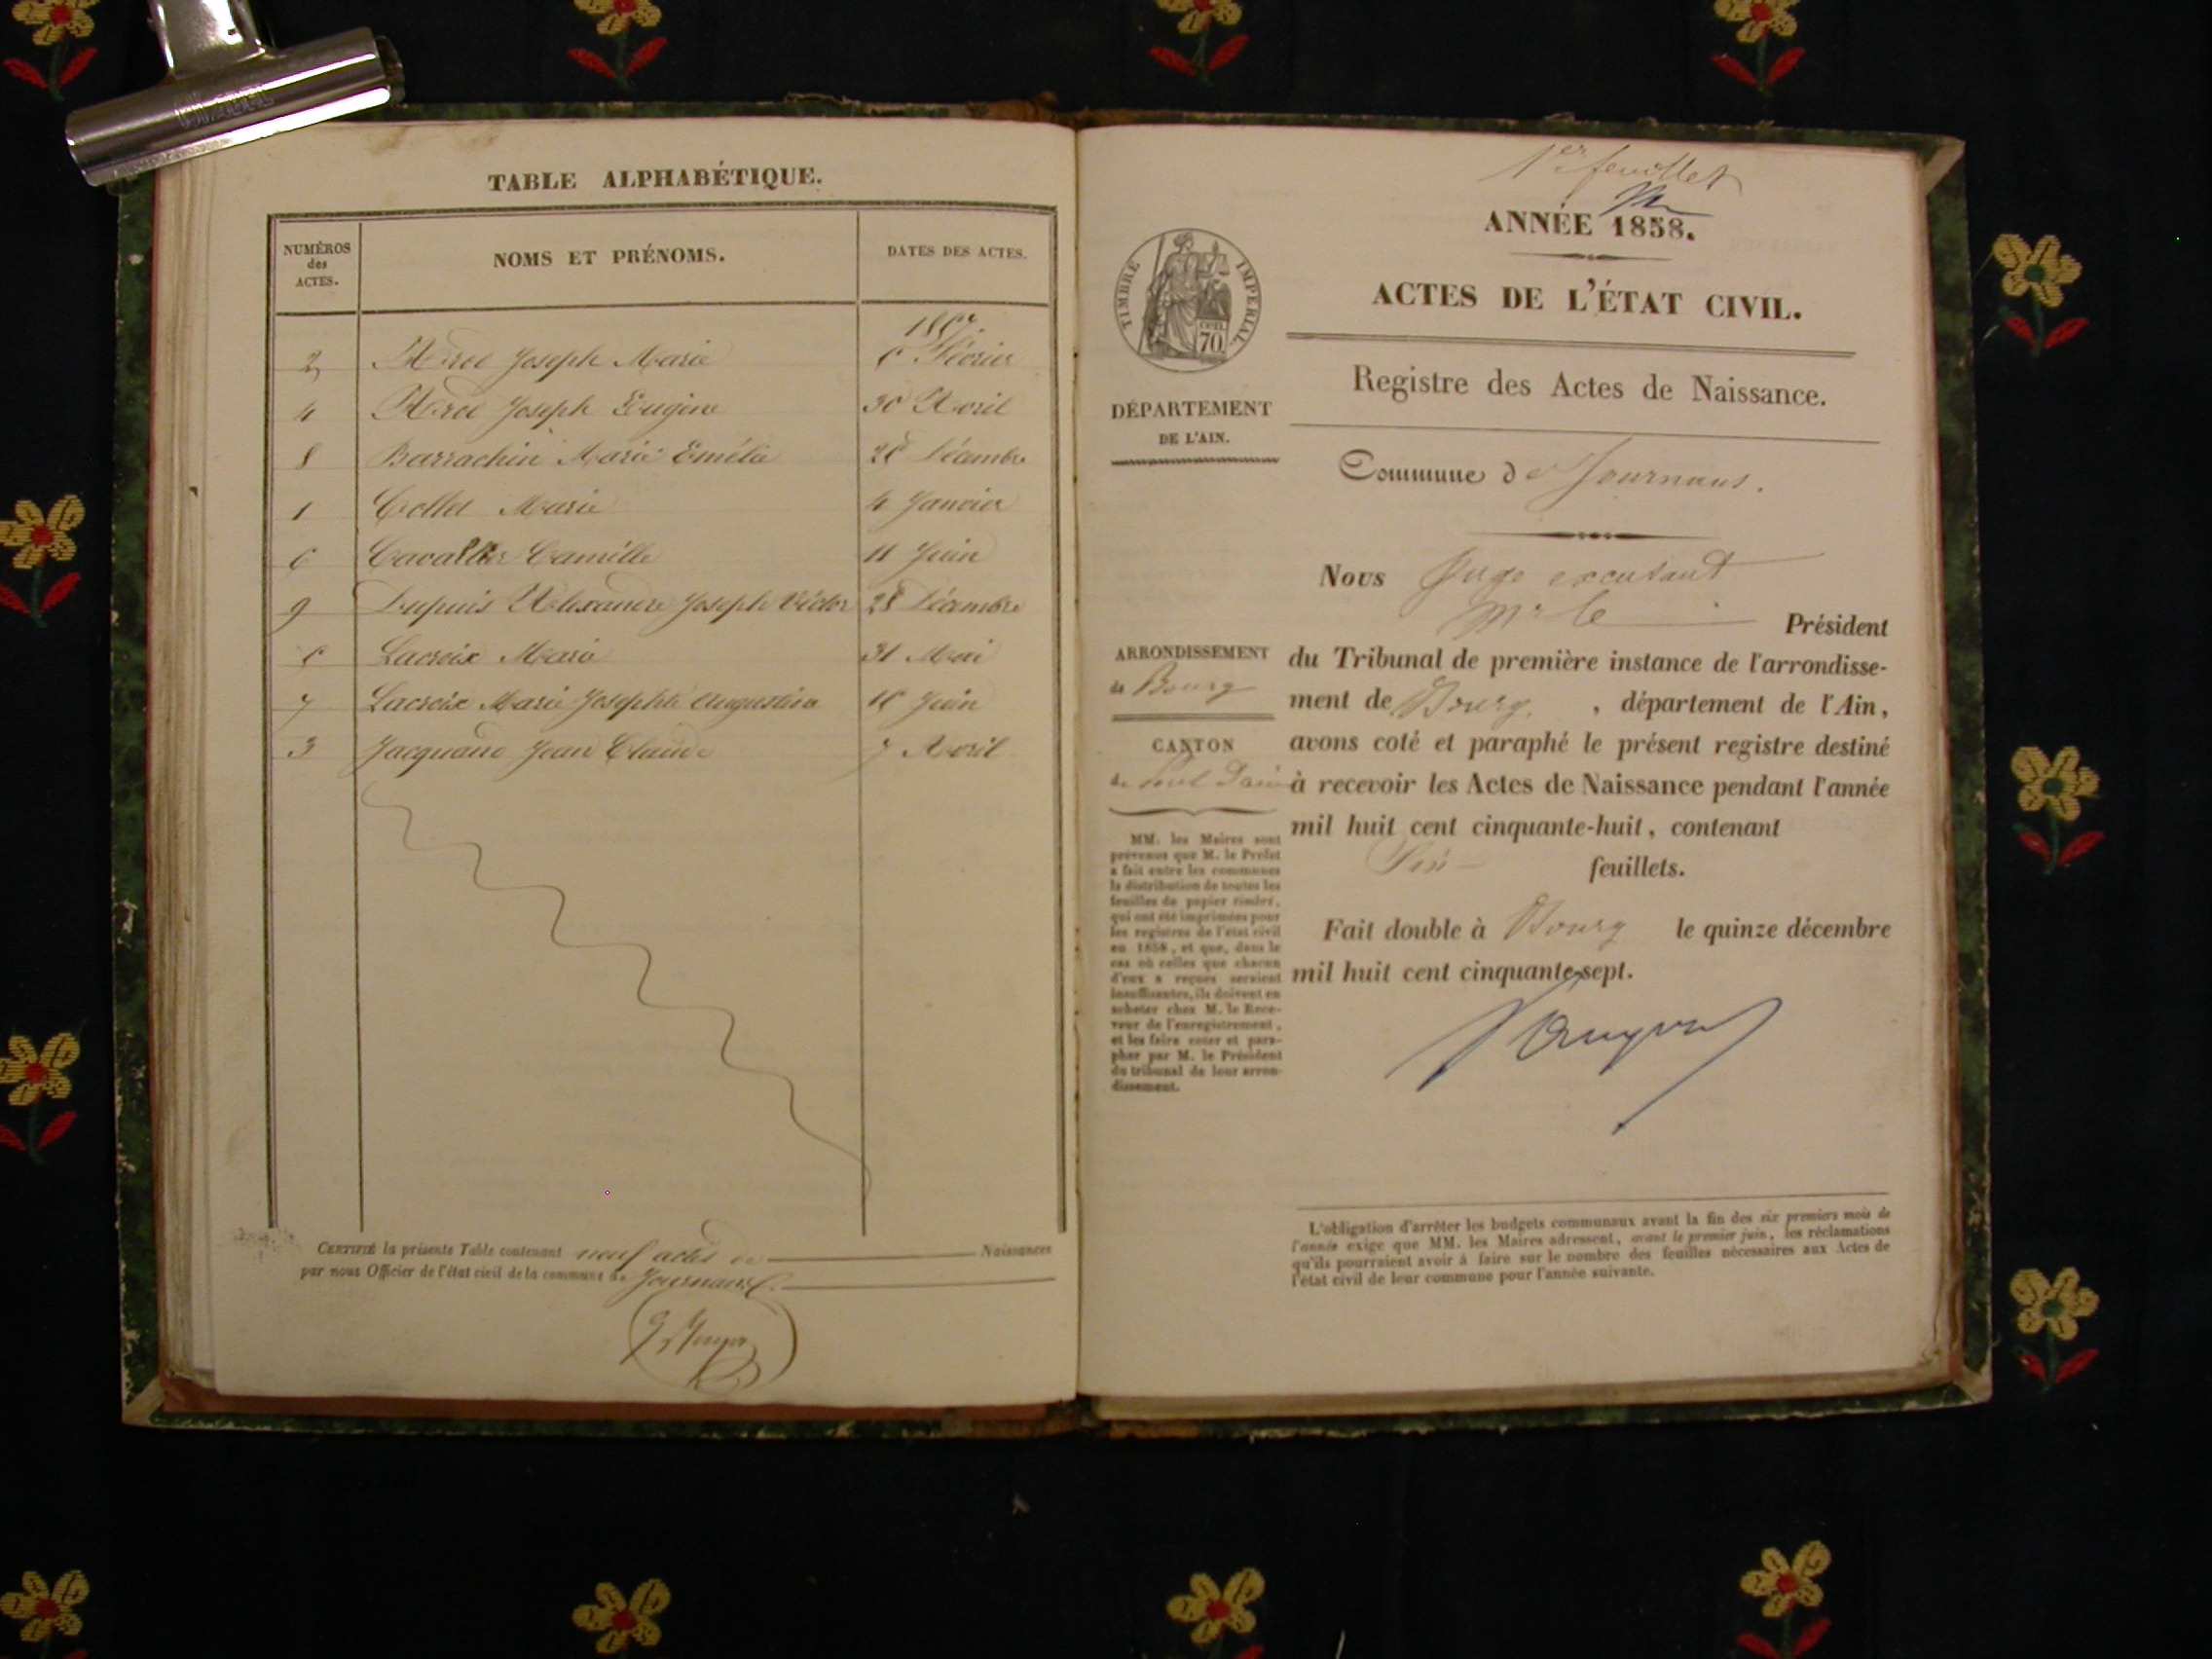 TABLE ALPHABÉTIQUE.
NUMÉROS des ACTES.
NOMS ET PRÉNOMS.
DATES DES ACTES.
2 Joseph Marie Février
4 Joseph Eugène 30 Avril
8 Barrachin Marie Décembre
1 Collet Marie 4 Janvier
6 Camille 11 Juin
9 Dupuis Alexandre Joseph Victor 28 Décembre
Lacroix Marie 31 Mai
7 Lacroix Marie Juin
3 Jacquand Jean Claude 7 Avril
CERTIFIÉ la présente Table contenant neuf actes de Naissances
par nous Officier de l'état civil de la commune de Journans
1er feuillet
ANNÉE 1858.
ACTES DE L'ÉTAT CIVIL.
TIMBRE IMPERIAL
70
DÉPARTEMENT
DE L'AIN.
ARRONDISSEMENT
de Bourg
CANTON
de Pont Dain
MM. les Maires sont
prévenus que M. le Préfet
a fait entre les communes
la distribution de toutes les
feuilles de papier timbré,
qui ont été imprimées pour
les registres de l'état civil
en 1858, et que, dans le
cas où celles que chacun
d'eux a reçues seraient
insuffisantes, ils doivent en
acheter chez M. le Rece-
veur de l'enregistrement,
et les faire coter et para-
pher par M. le Président
du tribunal de leur arron-
dissement.
Registre des Actes de Naissance.
Commune de Journans.
Nous Juge
Mr le Président
du Tribunal de première instance de l'arrondisse-
ment de Bourg, département de l'Ain,
avons coté et paraphé le présent registre destiné
à recevoir les Actes de Naissance pendant l'année
mil huit cent cinquante-huit, contenant
feuillets.
Fait double à Bourg le quinze décembre
mil huit cent cinquante-sept.
L'obligation d'arrêter les budgets communaux avant la fin des six premiers mois de
l'année exige que MM. les Maires adressent, avant le premier juin, les réclamations
qu'ils pourraient avoir à faire sur le nombre des feuilles nécessaires aux Actes de
l'état civil de leur commune pour l'année suivante.